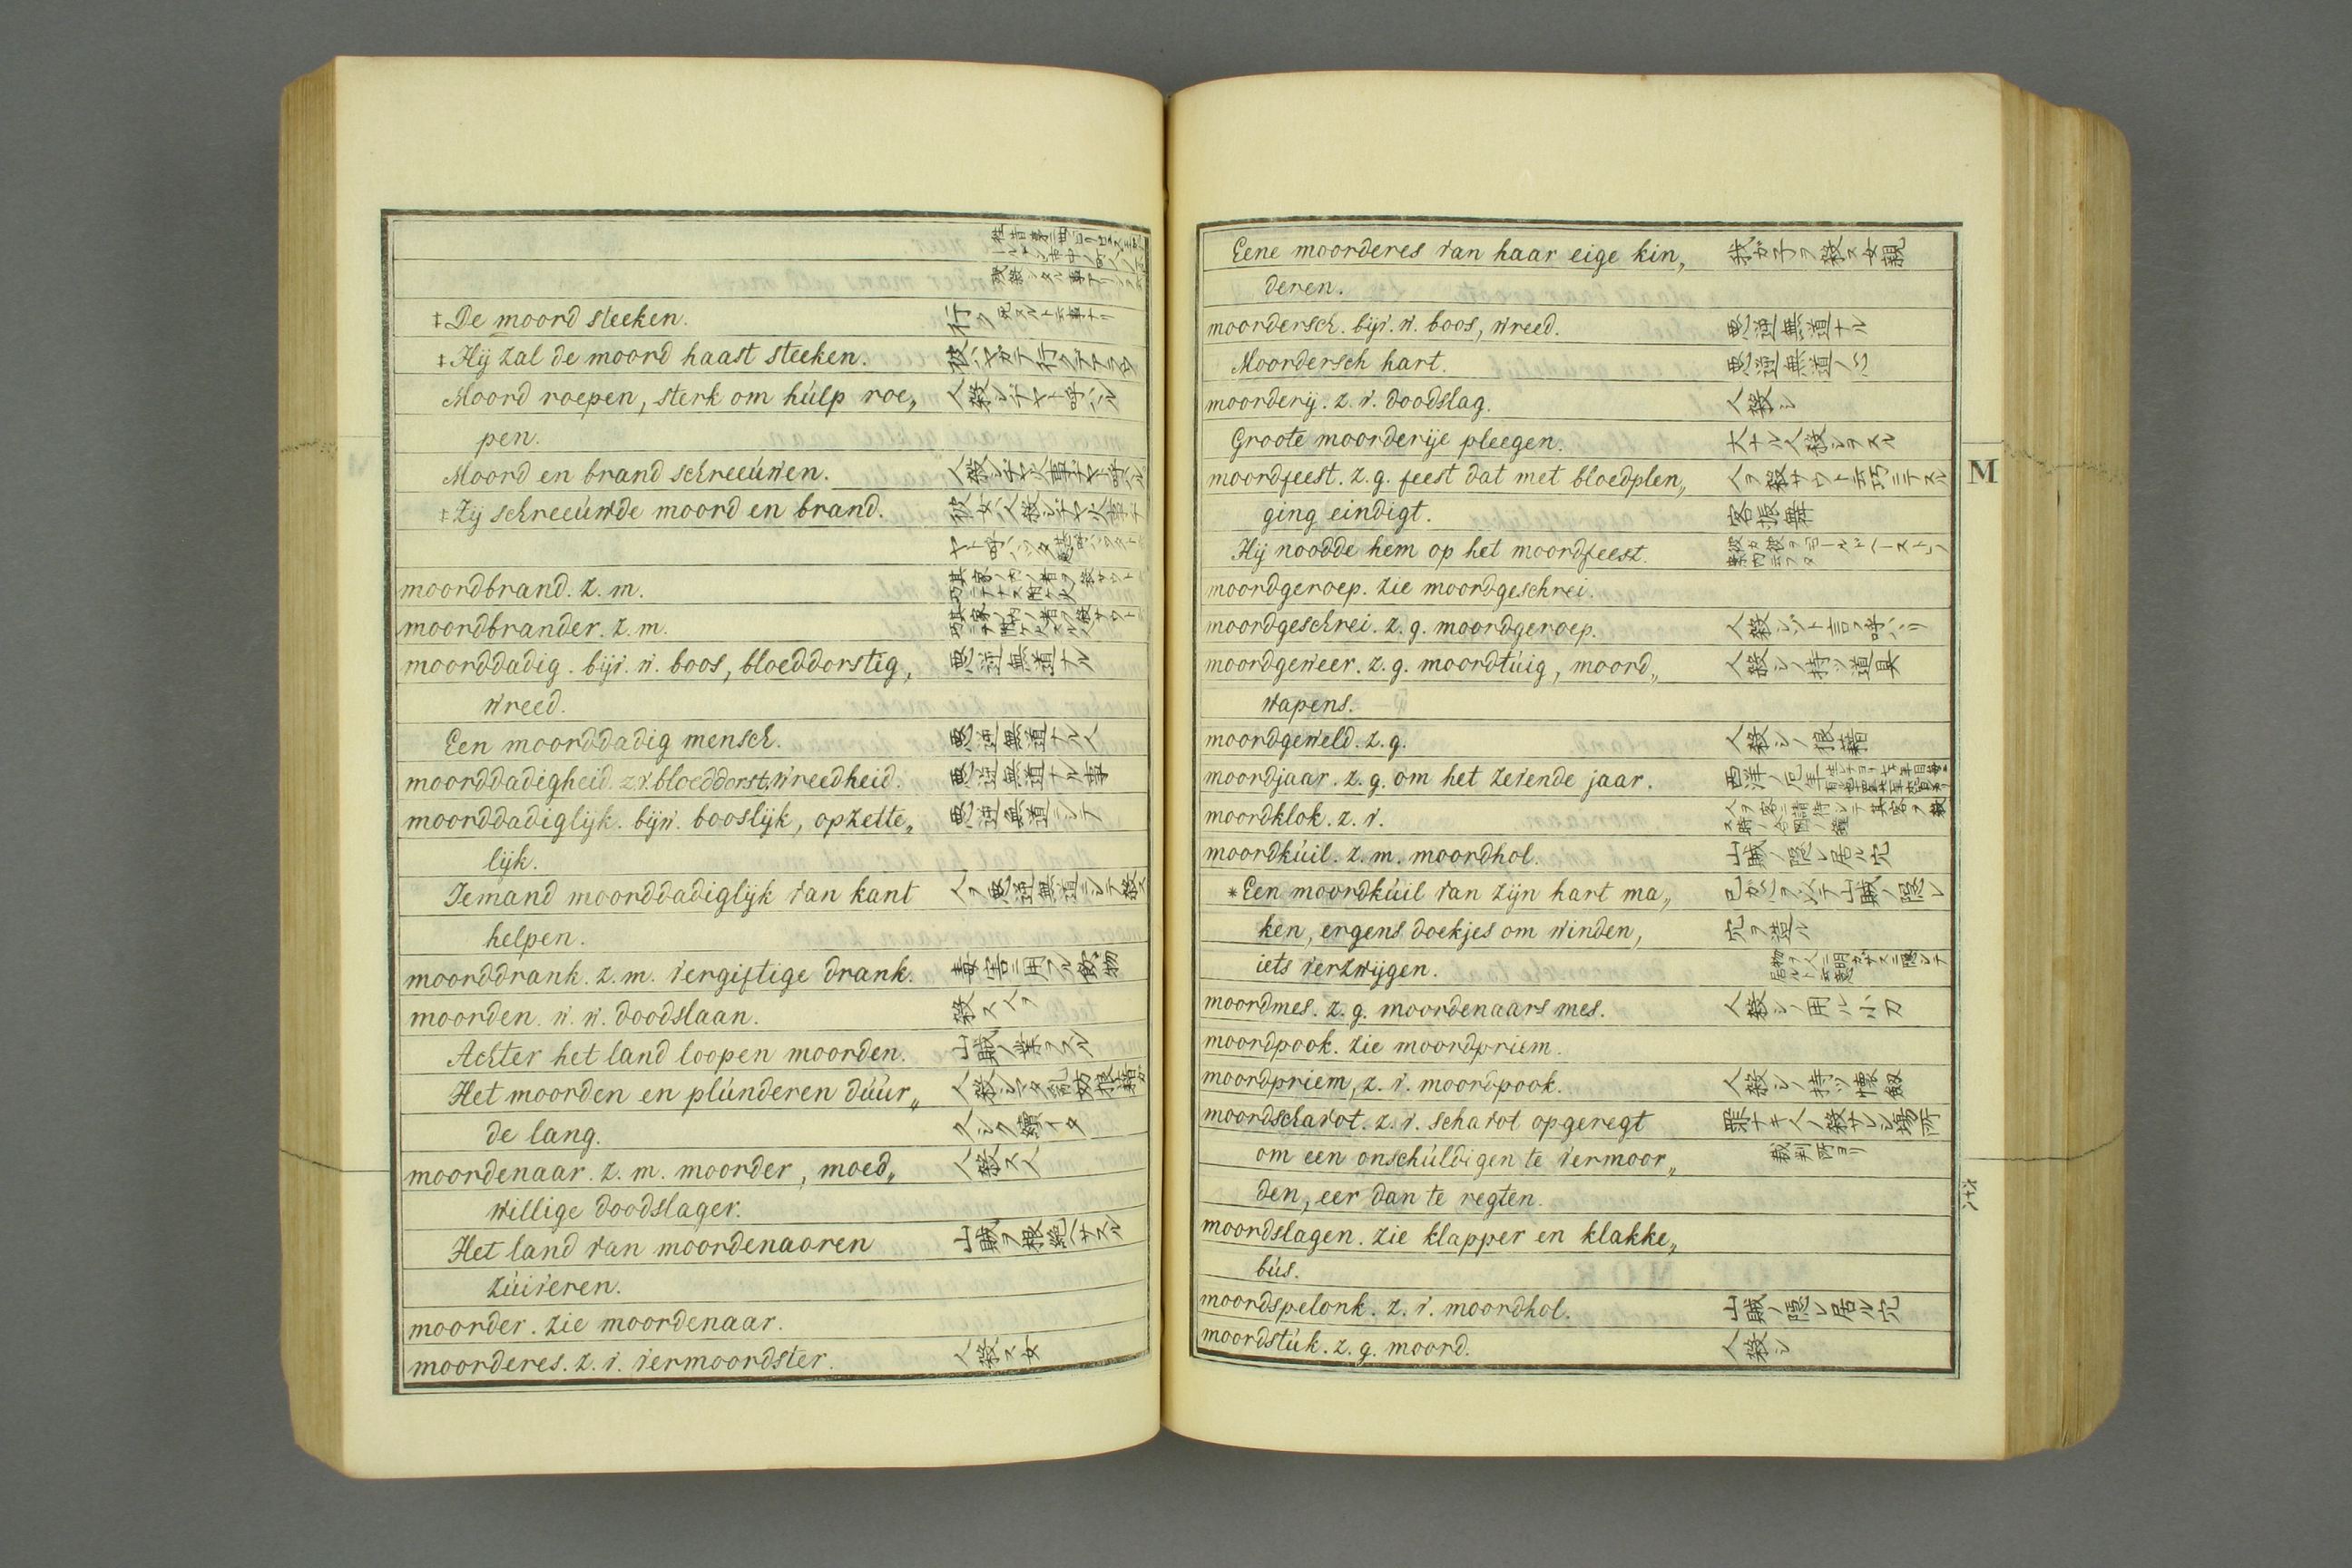 ‡De moord steeken. 行ク 死ヌルト云事ナリ
‡Hij zal de moord haast steeken.
Moord roepen, sterk om húlp roe„ 人殺シヂヤト呼ハル
pen.
Moord en brand schreeúwen. 人殺シヂヤ火事ヂヤト呼ハル
‡Zij schreeúwde moord en brand. 彼女ハ人殺シヂヤ火事ヂ
ヤト呼ハツタ
moordbrand. z. m.
moordbrander. z. m.
moorddadig. bijv. w. boos, bloeddorstig, 悪逆無道ナル
wreed.
Een moorddadig mensch. 悪逆無道ナル人
moorddadigheid. z.v. bloeddorst, wreedheid. 悪逆無道ナル事
moorddadiglijk. bijw. booslijk, opzette„ 悪逆無道ニシテ
lijk.
Iemand moorddadiglijk van kant 人ヲ悪逆無道ニシテ殺ス
helpen.
moorddrank. z. m. vergiftige drank. 毒害ニ用フル飲物
moorden. w. w. doodslaan. 殺ス人ヲ
Achter het land loopen moorden. 山賊ノ業ヲスル
Het moorden en plúnderen dúúr„ 人殺シヤ乱妨狼藉ガ
de lang. 久シク續イタ
moordenaar. z. m. moorder, moed„ 人殺ス人
willige doodslager.
Het land van moordenaaren 山賊ヲ根絶ヘサスル
zúiveren.
moorder. zie moordenaar.
moorderes. z. v. vermoordster. 人殺ス女
Eene moorderes van haar eige kin„ 我ガ子ヲ殺ス女親
deren.
moordersch. bijv. w. boos, wreed. 悪逆無道ナル
Moordersch hart. 悪逆無道ノ心
moorderij. z. v. doodslag. 人殺シ
Groote moorderije pleegen. 大ナル人殺シヲスル
moordfeest. z. g. feest dat met bloedplen„ 人ヲ殺サウト云巧ニテスル
ging eindigt. 客振舞
Hij noodde hem op het moordfeest.
moordgeroep. zie moordgeschrei.
moordgeschrei. z. g. moordgeroep. 人殺シゾト言フ呼ハリ
moordgeweer. z. g. moordtúig, moord„ 人殺シノ持ツ道具
wapens.
moordgeweld. z. g. 人殺シノ狼藉
moordjaar. z. g. om het zevende jaar. 西洋ノ厄年
moordklok. z. v. 人ヲ客ニ請待シテ其客ヲ殺
ス時ノ合圖ノ鐘
moordkúil. z. m. moordhol. 山賊ノ隠レ居ル穴
*Een moordkúil van zijn hart ma„ 己ガ心ヲ以テ山賊ノ隠レ
ken, ergens doekjes om winden, 穴ヲ造ル
iets verzwijgen.
moordmes. z. g. moordenaars mes. 人殺シノ用ル小刀
moordpook. zie moordpriem.
moordpriem, z. v. moordpook. 人殺シノ持ツ懐劔
moordschavot. z. v. schavot opgeregt 罪ナキ人ノ殺サレシ場所
om een onschúldigen te vermoor„ 裁判所ヨリ
den, eer dan te regten.
moordslagen. zie klapper en klakke„
bús.
moordspelonk. z. v. moordhol. 山賊ノ隠レ居ル穴
moordstúk. z. g. moord. 人殺シ
M